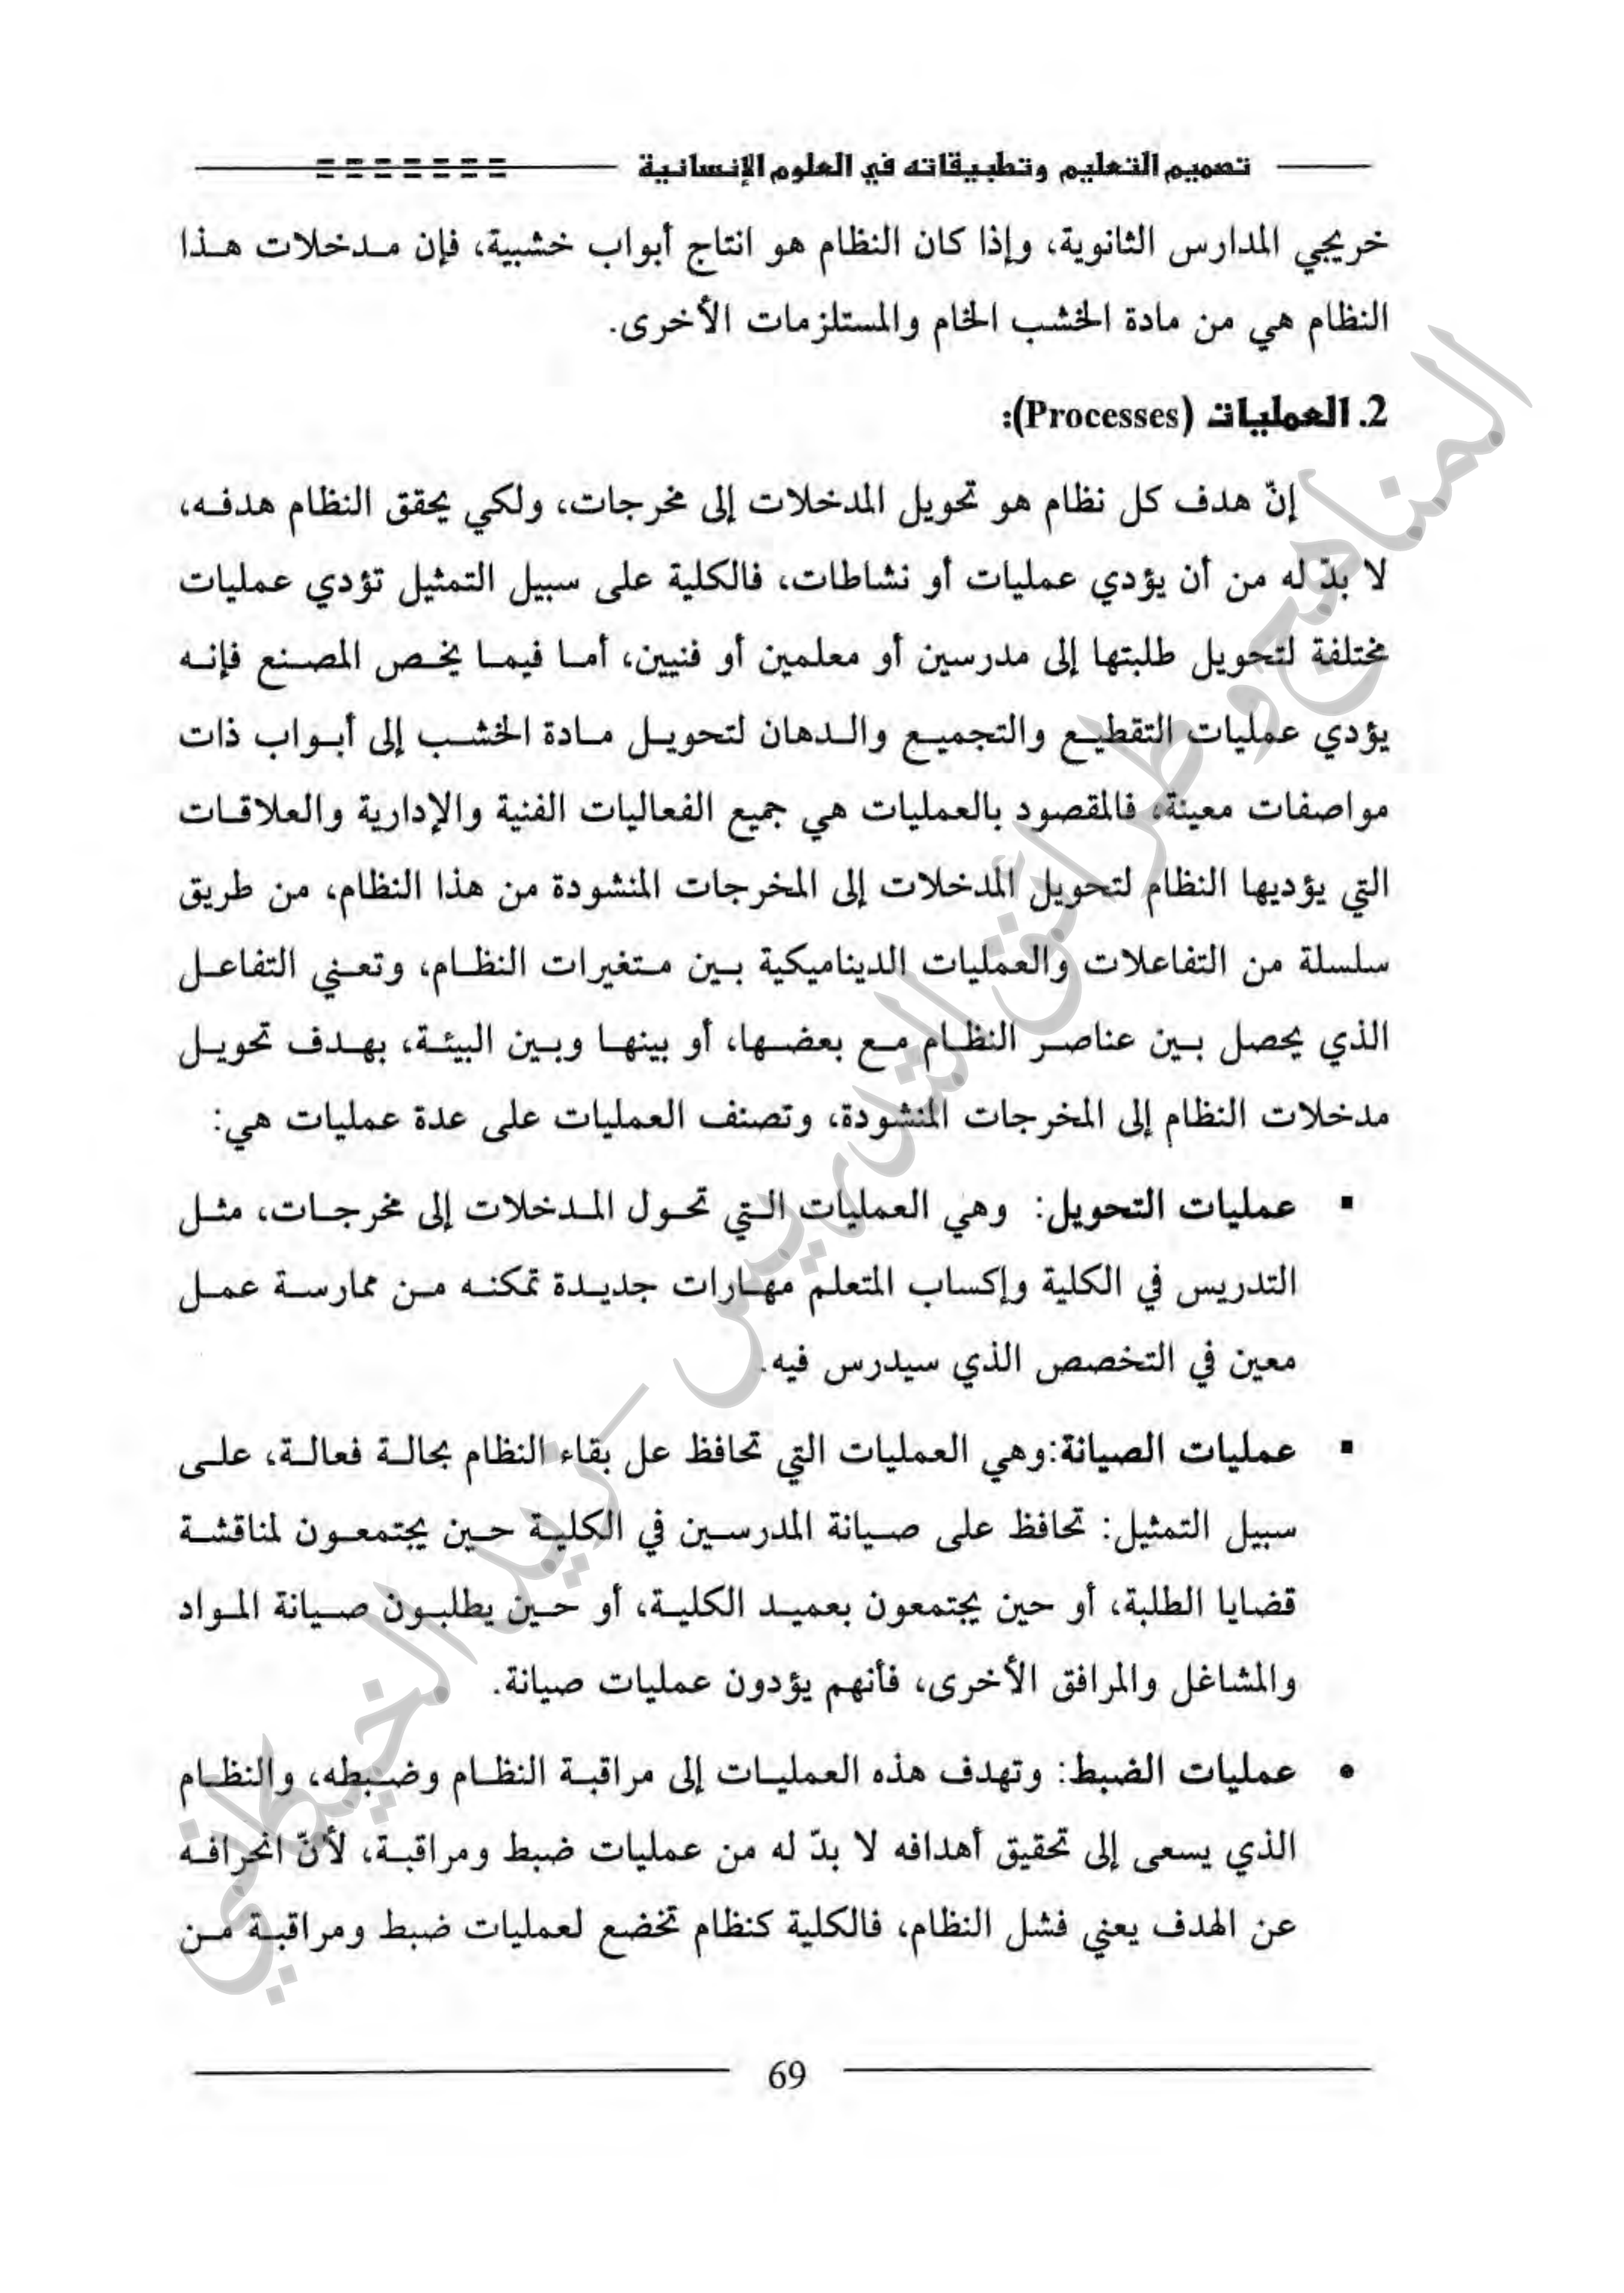 تصميم التعليم وتطبيقاته في العلوم الإنسانية
خريجي المدارس الثانوية، وإذا كان النظام هو انتاج أبواب خشبية، فإن مدخلات هذا
النظام هي من مادة الخشب الخام والمستلزمات الأخرى.
2. العمليات (Processes):
إنّ هدف كل نظام هو تحويل المدخلات إلى مخرجات، ولكي يحقق النظام هدفه،
لا بدّ له من أن يؤدي عمليات أو نشاطات، فالكلية على سبيل التمثيل تؤدي عمليات
مختلفة لتحويل طلبتها إلى مدرسين أو معلمين أو فنيين، أما فيما يخص المصنع فإنه
يؤدي عمليات التقطيع والتجميع والدهان لتحويل مادة الخشب إلى أبواب ذات
مواصفات معينة، فالمقصود بالعمليات هي جميع الفعاليات الفنية والإدارية والعلاقات
التي يؤديها النظام لتحويل المدخلات إلى المخرجات المنشودة من هذا النظام، من طريق
سلسلة من التفاعلات والعمليات الديناميكية بين متغيرات النظام، وتعني التفاعل
الذي يحصل بين عناصر النظام مع بعضها، أو بينها وبين البيئة، بهدف تحويل
مدخلات النظام إلى المخرجات المنشودة، وتصنف العمليات على عدة عمليات هي:
▪ عمليات التحويل: وهي العمليات التي تحول المدخلات إلى مخرجات، مثل
التدريس في الكلية وإكساب المتعلم مهارات جديدة تمكنه من ممارسة عمل
معين في التخصص الذي سيدرس فيه.
▪ عمليات الصيانة:وهي العمليات التي تحافظ عل بقاء النظام بحالة فعالة، على
سبيل التمثيل: تحافظ على صيانة المدرسين في الكلية حين يجتمعون لمناقشة
قضايا الطلبة، أو حين يجتمعون بعميد الكلية، أو حين يطلبون صيانة المواد
والمشاغل والمرافق الأخرى، فأنهم يؤدون عمليات صيانة.
• عمليات الضبط: وتهدف هذه العمليات إلى مراقبة النظام وضبطه، والنظام
الذي يسعى إلى تحقيق أهدافه لا بدّ له من عمليات ضبط ومراقبة، لأنّ انحرافه
عن الهدف يعني فشل النظام، فالكلية كنظام تخضع لعمليات ضبط ومراقبة من
69
المناهج وطرائق التدريس – زيد الخيكاني